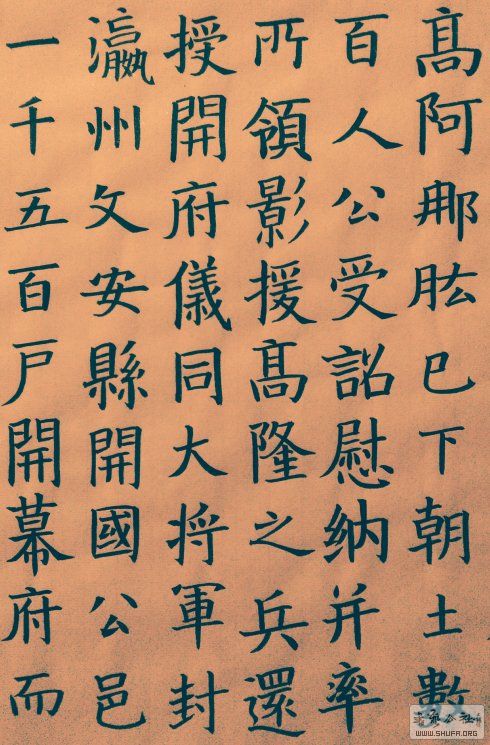 髙阿那肱已下朝士數
百人公受詔慰納并率
所領影援髙隆之兵還
授開府儀同大将軍封
瀛州文安縣開國公邑
一千五百戸開幕府而
WWW.SHUFA.ORG